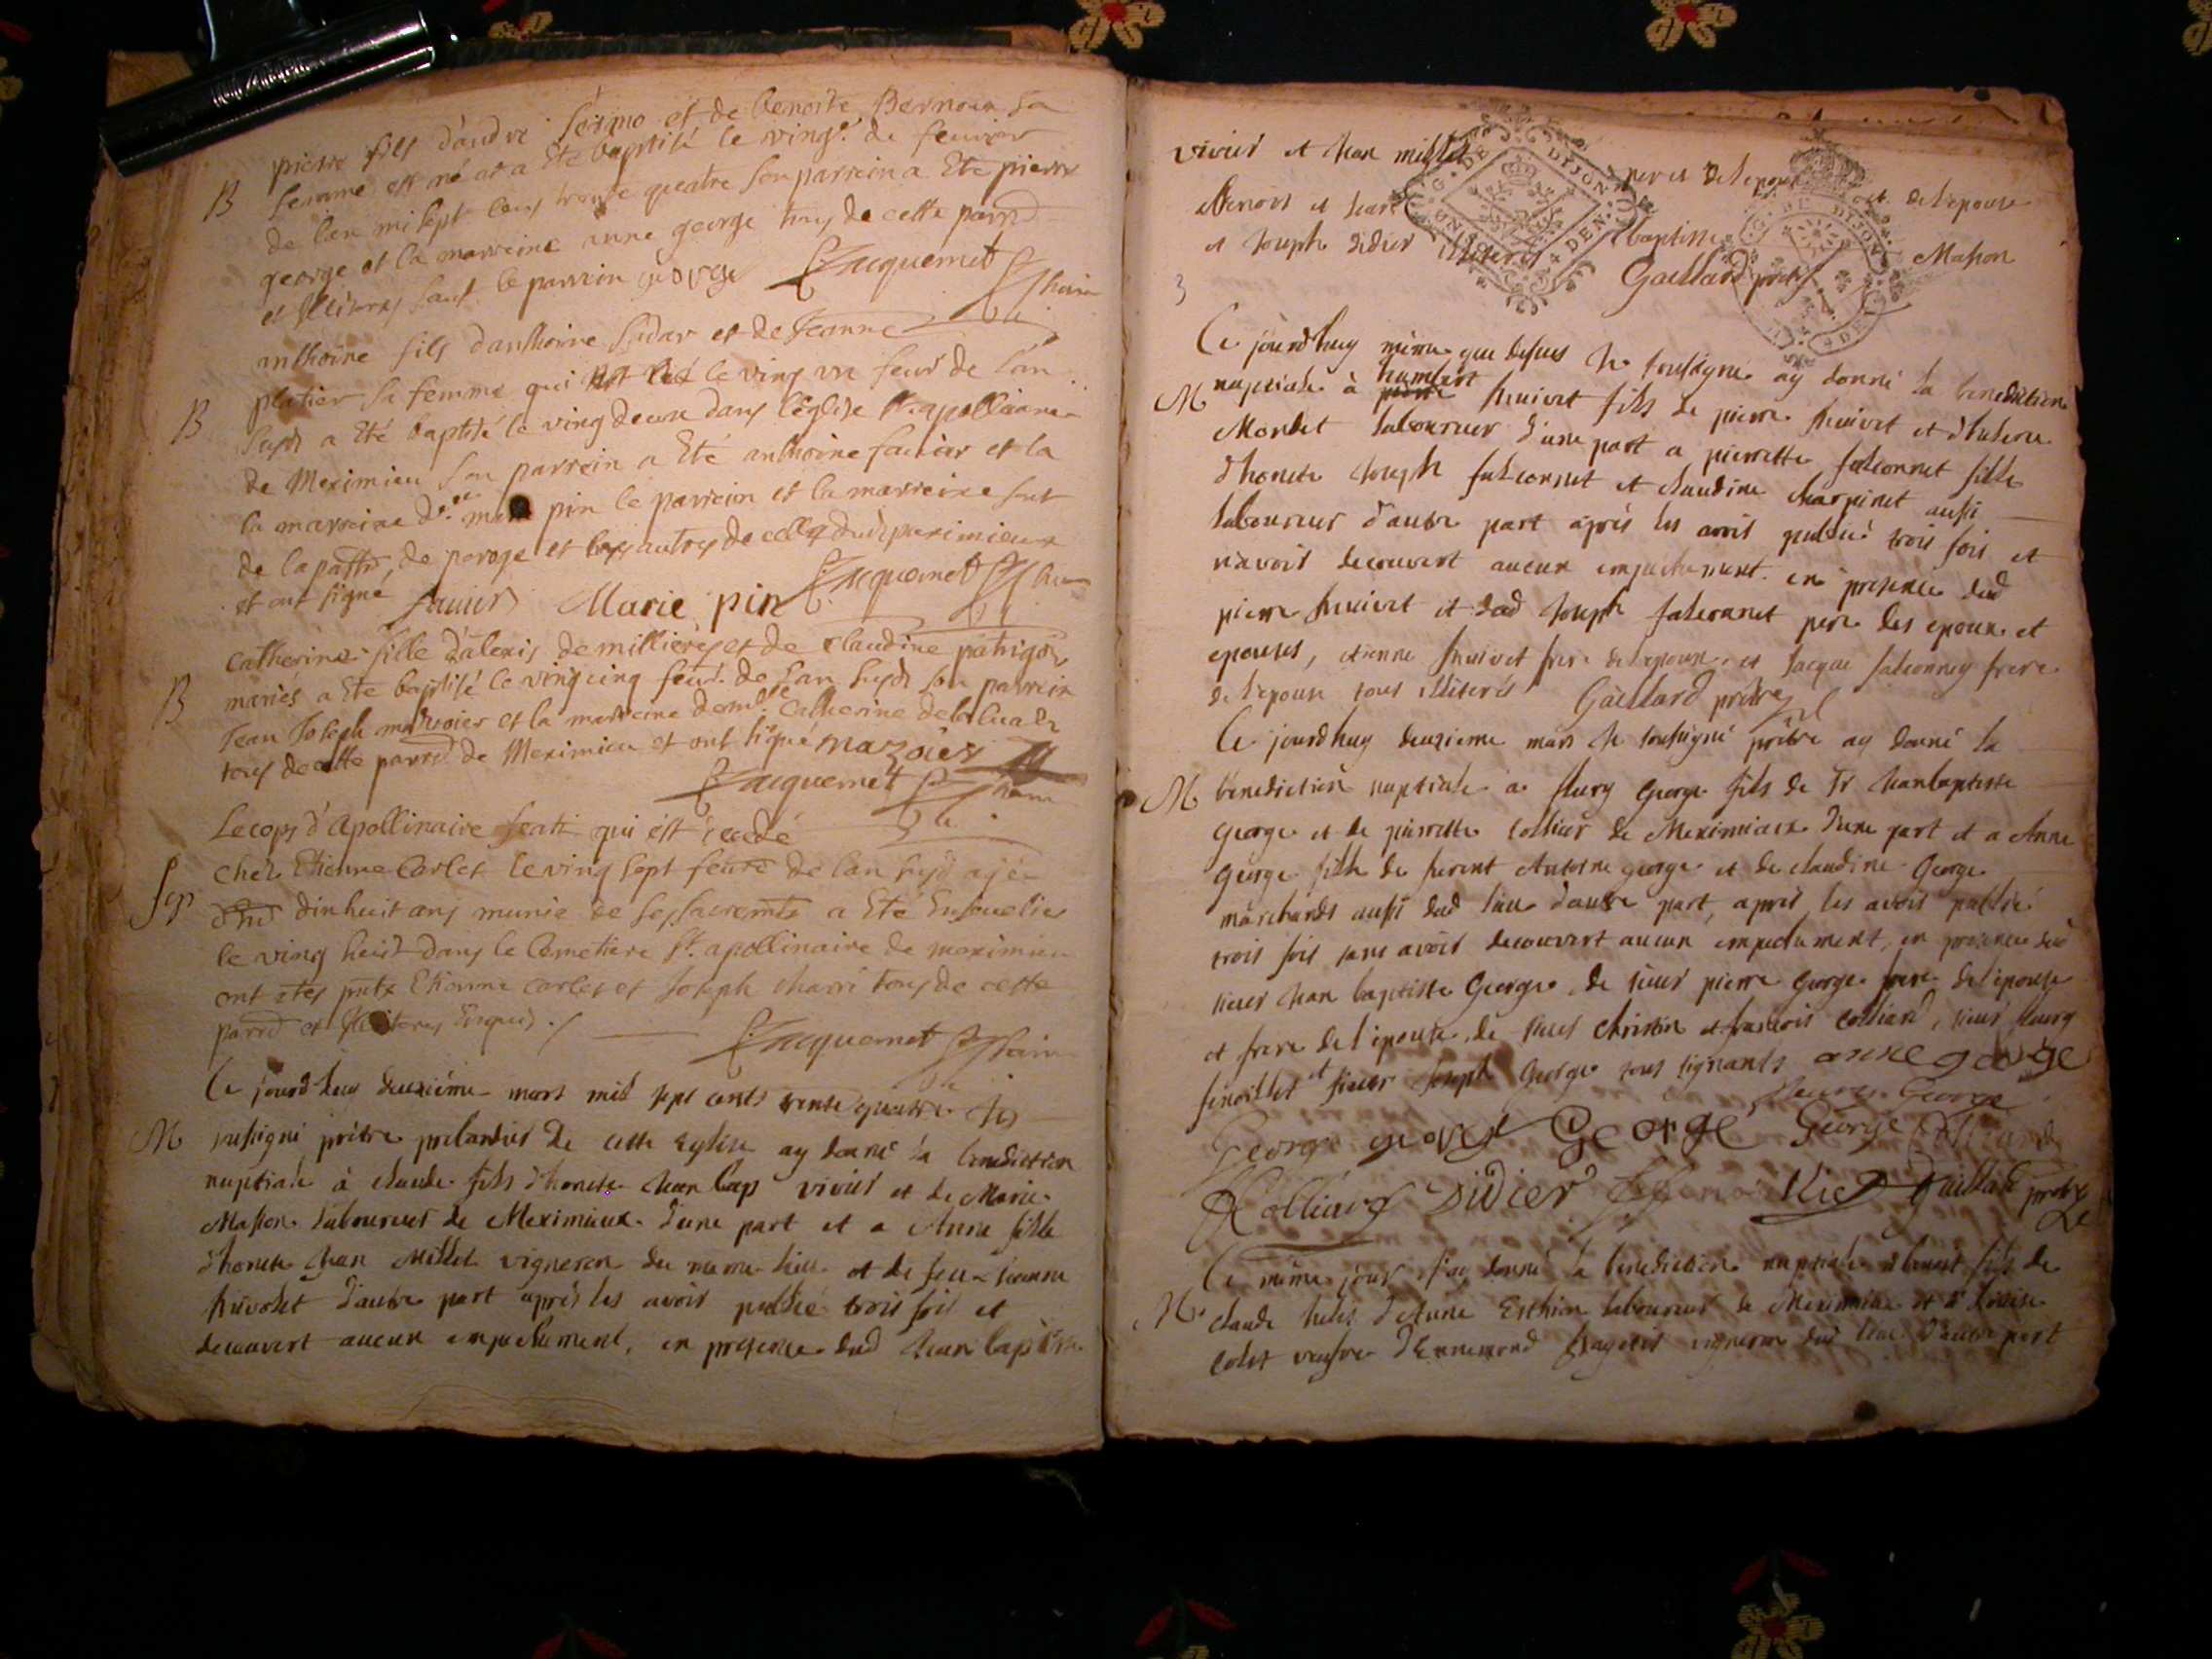 pierre fils d'andre et de benoite Bernoux sa
B femme est né et a Eté baptisé le vingt de feuvrier
de l'an mil sept cens trante quatre son parrein a Ete pierre
george et la marreine anne george tous de cette parrd
et Illiteres sauf le parrein george Jacquemet
anthoine fils d'anthoine et de Jeanne
platier sa femme qui est né le ving un feur de l'an
B susd a Eté baptisé le ving deux dans l'église St. apollinaire
de Meximieu son parrein a Eté anthoine et la
la marreine d.elle marie pin le parrein et la marreine sont
de la de peroge et les autres de celle dud meximieux
et ont signé Marie pin Jacquemet
Catherine fille d'alexis de millieres et de claudine
B mariés a Ete baptisé le ving cinq feur. de l'an susd son parrein
Jean Joseph et la marreine demlle Catherine
tous de cette parrd de Meximieu et ont signé mazoier
Jacquemet
Le cops d'Apollinaire qui est decedé
chéz Etienne Carlet le ving sept feure de l'an susd agée
Sep dinhuit ans munie de ses sacremts a Eté Ensevelie
le ving heuit dans le Cemetiere St. apollinaire de meximieu
ont etes pntz Etienne Carlet et Joseph charri tous de cette
parrd et Illiteres Enquis ./. Jacquemet
Ce jourdhuy deuxième mars mil sept cents trente quatre Je
M soussigné prêtre prebandier de cette Eglise ay donné la benediction
nuptiale à claude fils d'honete Jean bap vivier et de Marie
Masson laboureur de Meximieux d'une part et a Anne fille
d'honete Jean Millet vigneron du meme lieu et de feu Jeanne
d'autre part après les avoir publié trois fois et
decouvert aucun empechement, en presence dud Jean baptiste
vivier et Jean millet peres de l'epoux et de l'epouse
Benoit et Jean baptiste Masson
et Joseph didier illiterés Gaillard prêtre
3
Ce jourdhuy même que dessus Je soussigné ay donné la benediction
M nuptiale à humbert fils de pierre et d'
laboureur d'une part a pierrette falconnet fille
d'honete Joseph falconnet et claudine charpinet aussi
laboureur d'autre part après les avoir publié trois fois et
n'avoir decouvert aucun empechement en presence dud
pierre et dud Joseph falconnet pere des epoux et
epouses, etienne frere de l'epoux et Jacque falconnet frere
de l'epouse tous illiterés Gaillard prêtre
Ce jourdhuy deuxieme mars Je soussigné prêtre ay donné la
M benediction nuptiale a fleury George fils de Sr Jean baptiste
George et de pierrette Colliar de Meximieux d'une part et a Anne
George fille de Antoine george et de claudine George
marchands aussi dud lieu d'autre part, apres les avoir publié
trois fois sans avoir decouvert aucun empechement, en presence dud
sieur Jean baptiste George, de sieur pierre George frere de l'epouse
et frere de l'epouse, de sieur Christin et françois Colliard, sieur fleury
fenoillet et sieur Joseph George tous signants anne george
fleury George
George george George George Colliard
Colliard Didier Gaillard prêtre
Ce même jour j'ay donné la benediction nuptiale a benoit fils de
M claude d'Anne laboureur de Meximieux et à Louise
Colet veusve d'Ennemond vigneron dud lieu d'autre part